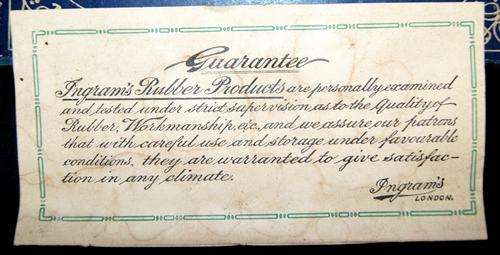 Guarantee
Ingram's Rubber Products are personally examined
and tested under strict supervision, as to the Quality of
Rubber, Workmanship, etc., and we assure our patrons
that with careful use and storage under favourable
conditions, they are warranted to give satisfac-
tion in any climate.
Ingram's
LONDON.